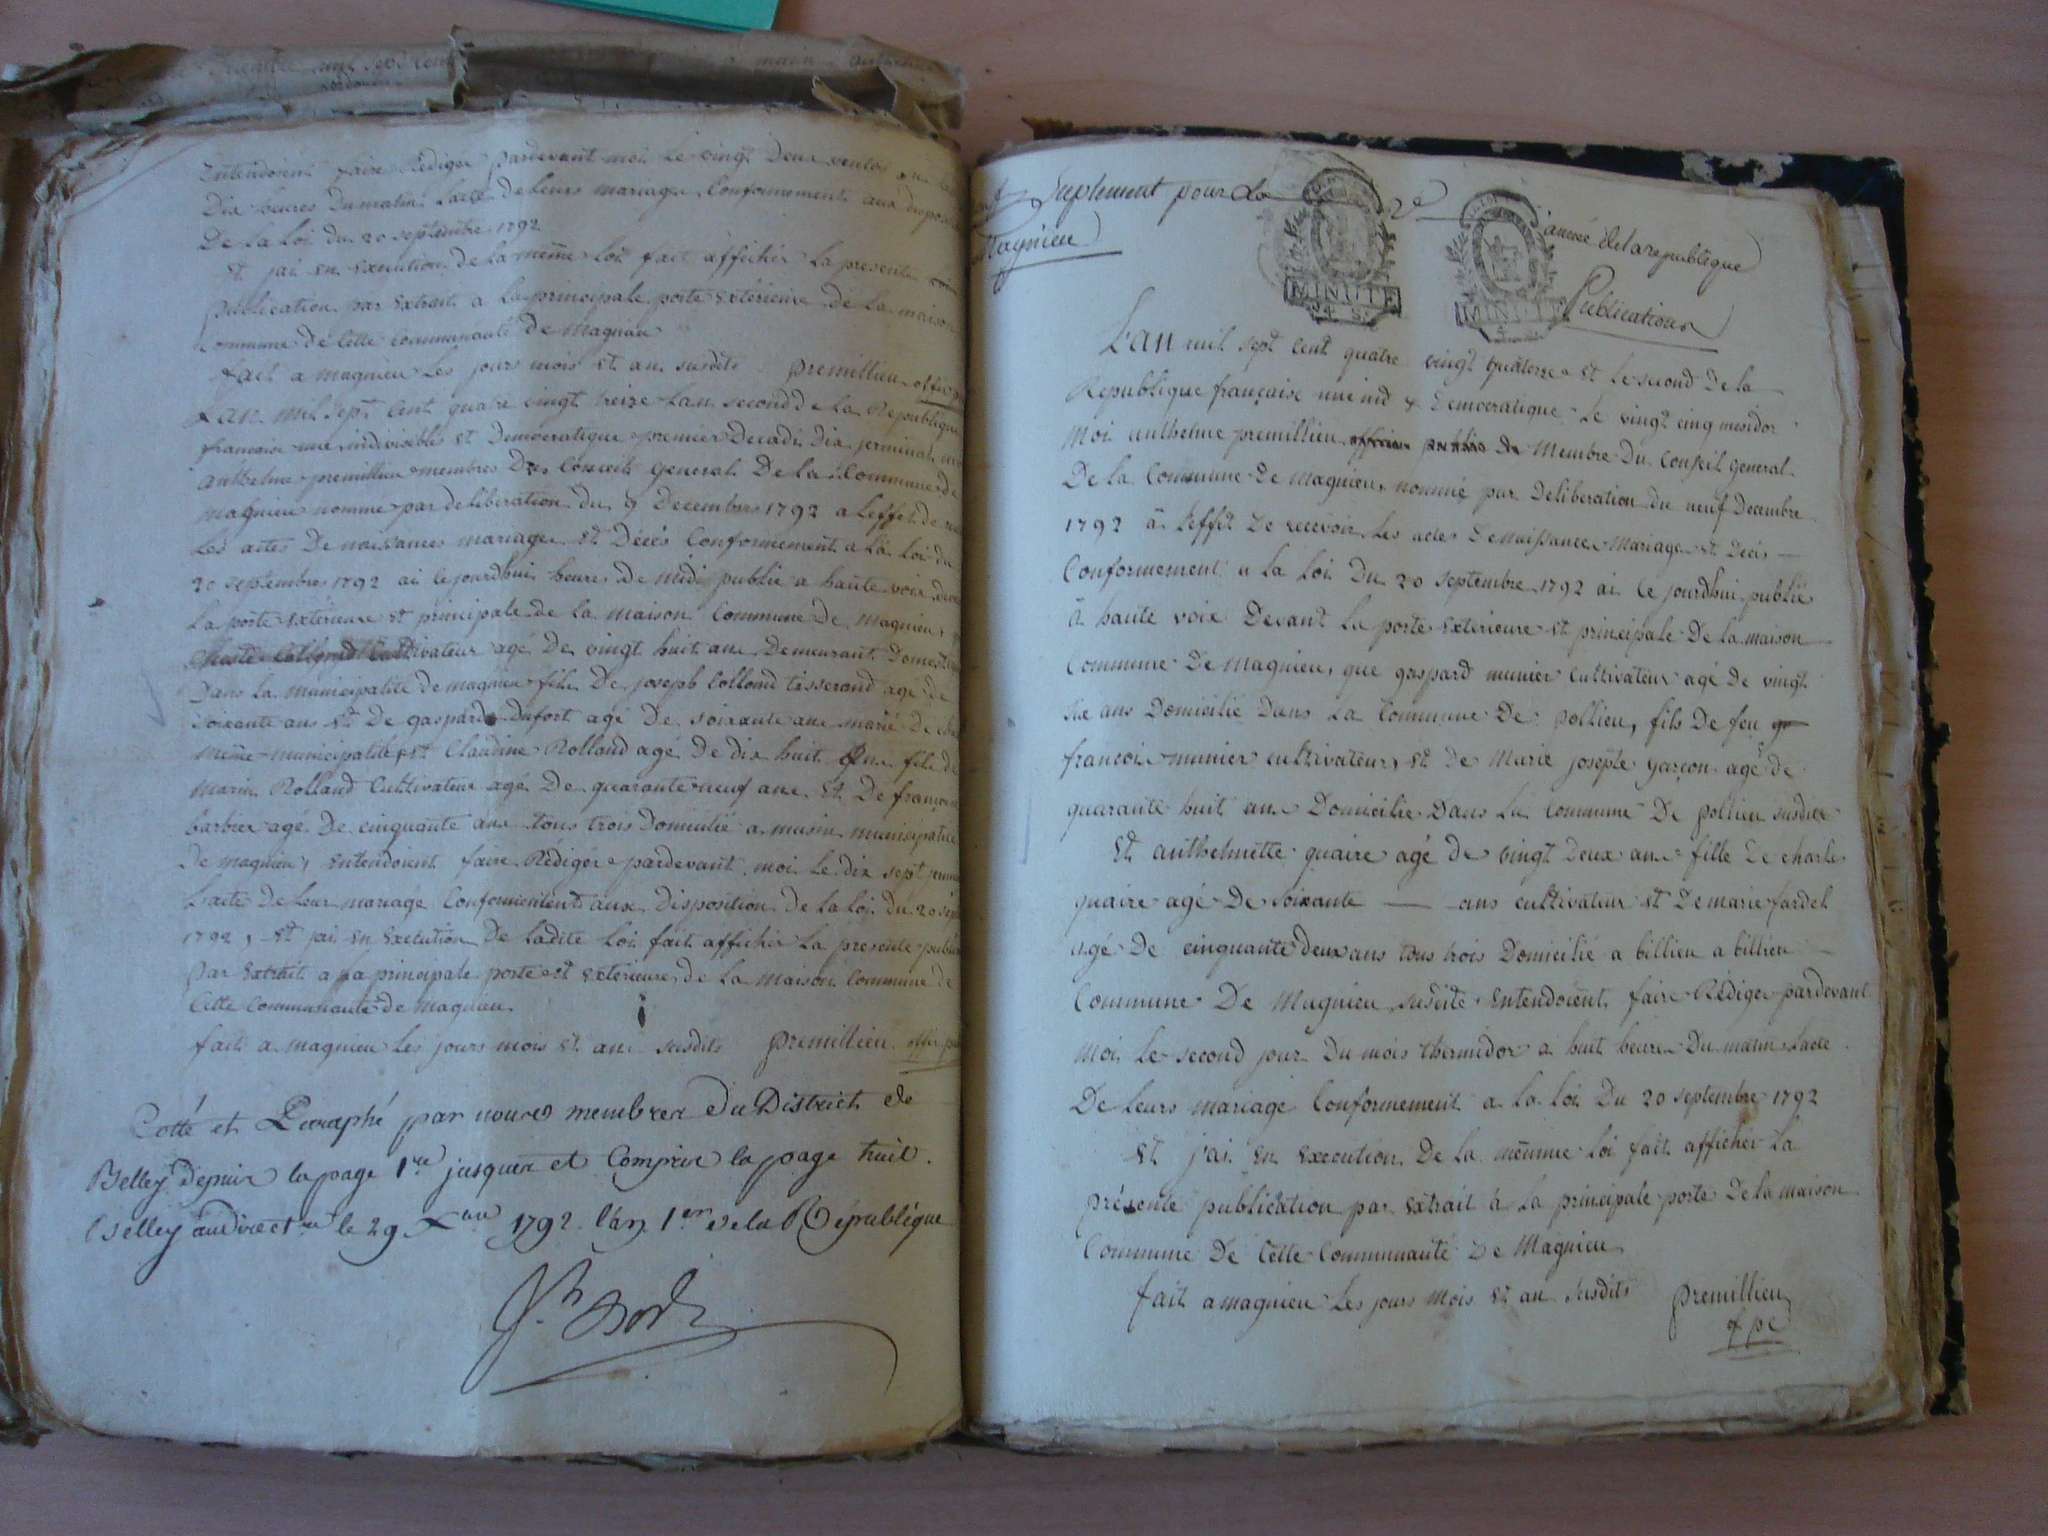 Intendoient faire Rédiger pardevant moi Le vingt Deux
Dix heures Du matin Lacte De leurs mariage Conformement aux
De La Loi du 20 septembre 1792
Et jai En Execution de La même Loi fait afficher La presente
publication par Extrait a La principale porte Extérieure de La maison
Commune de Cette Communauté De Magnieu
fait a magnieu Les jours mois Et an susdits premillieu
Lan mil sept Cent quatre vingt treize Lan second de La Republique
francoise une indivisible Et Democratique premier Decadi Dix jerminal
anthelme premillieu membres Du Conseil General De La Commune de
magnieu nomme par deliberation du 9 Decembre 1792 a Leffet de
Les actes De naissances mariage Et Décés Conformement a La Loi du
20 septembre 1792 ai Cejourdhui heures De midi publie a haute voix
La porte Extérieure Et principale de La maison Commune De magnieu
Cultivateur agé De vingt huit ans Demeurant
Dans La municipalité de magnieu fils De joseph Collond tisserand agé de
soixante ans Et De gasparde Dufort agé De soixante ans marié De
même municipalité Et Claudine Rolland agé De dix huit ans fille de
Marin Rolland Cultivateur agé De quarante neuf ans Et De
barbier agé De cinquante ans tous trois Domicilié a musin municipalité
De magnieu, Entendoient faire Rédiger pardevant moi Le dix sept
Lacte De Leur mariage Conformement aux Disposition De La Loi Du 20
1792, Et jai En Execution De Ladite Loi fait afficher La presente
par Extrait a La principale porte Et Extérieure De La maison Commune de
Cette Communauté De Magnieu
fait a magnieu Les jours mois Et an susdits premillieu
Cotté et Paraphé par nous membres du District de
Belley depuis la page 1re jusques et Compris la page huit.
Belley au Directre le 29 Xbre 1792 l'an 1er de la République
Suplement pour La 2e année de la republique
Magnieu
MINUTE
MINUTE
Publications
L'AN mil sept cent quatre vingt quatorze Et Le second De La
Republique française une ind & Democratique Le vingt cinq mesidor
Moi anthelme premillieu officier public de Membre Du Conseil General
De La Commune De magnieu, nommé par Deliberation du neuf Decembre
1792 à Leffet De recevoir Les actes De naissance Mariage Et Décés
Conformement a La Loi Du 20 septembre 1792 ai Ce jourdhui publié
à haute voix Devant La porte Exterieure Et principale De La maison
Commune De Magnieu, que gaspard munier Cultivateur agé De vingt
six ans Domicilié Dans La Commune De pollieu, fils De feu
francois munier cultivateur, Et De Marie josephte garçon agé de
quarante huit ans Domicilié Dans La Commune De pollieu susdite
Et anthelmette quaire agé De vingt Deux ans fille De charle
quaire agé De soixante ans cultivateur Et De marie fardel
agé De cinquante deux ans tous trois Domicilié a billieu a billieu
Commune De Magnieu susdite Entendoient faire Rédiger pardevant
moi Le second jour Du mois thermidor a huit heures Du matin Lacte
De Leurs mariage Conformement a La Loi Du 20 septembre 1792
Et j'ai En Execution De La mêmme Loi fait afficher La
présente publication par Extrait à La principale porte De La maison
Commune De Cette Communauté De Magnieu
fait a magnieu Les jours mois Et an susdits premillieu